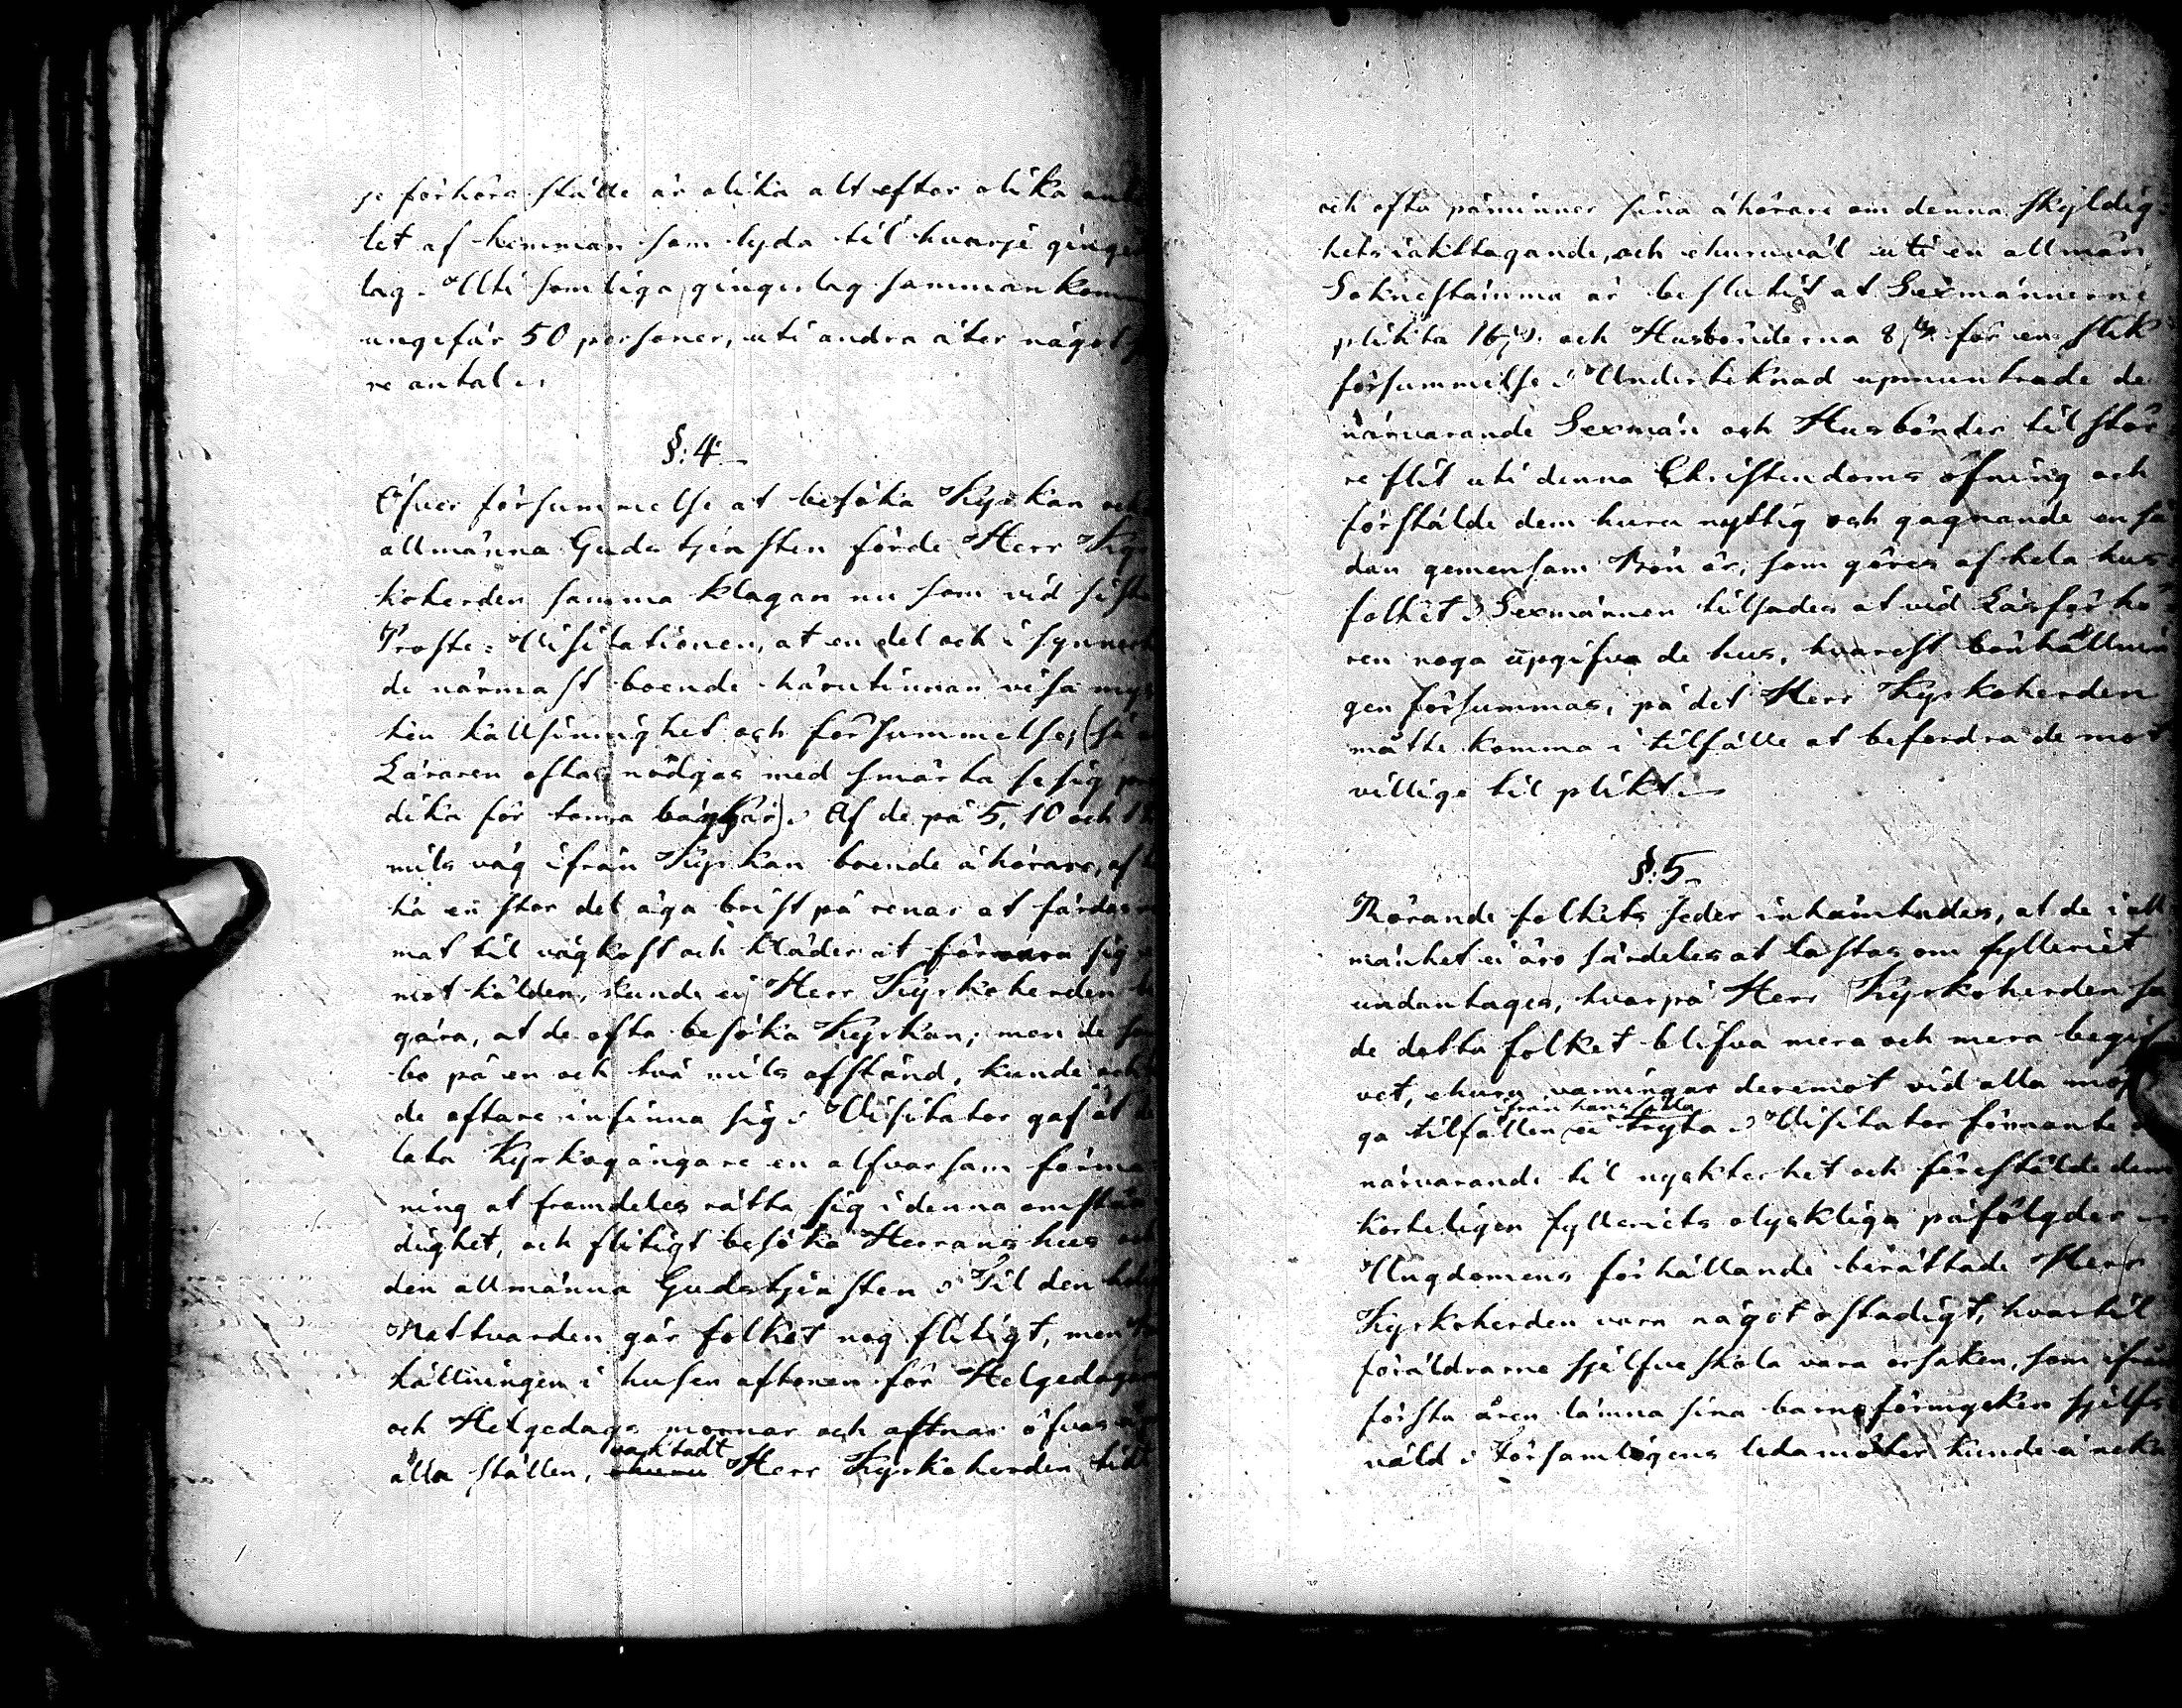 se förhöra ställe är olika alt efter olika
let af hemman som lyda til hvarje
lag. Uti somliga gingerlag samman
ungefär 50 personer, uti andra åter något
re antal.
§: 4.
Öfver försummelse at besöka Kyrkan
allmänna Gudstjensten förde Herr
koherden samma klagan nu som vid
Prosts-Visitationen, at en del och i
de närmast boende härutinnan visa
ken kallsinnighet och försummelse, (så
Läraren oftas nödgas med smärta se sig
dika för tomma bänkar). Af de på 5, 10 och
mils väg ifrån Kyrkan boende åhörare,
ka en stor del äga brist på renar at
mat til vägkost och kläder at förvara sig
mot kölden, kunde ej Herr Kyrkoherden
gära, at de ofta besöka Kyrkan; men de
bo på en och två mils afstånd, kunde
de oftare infinna sig. Visitator gaf åt
lata Kyrkogångare en alfvarsam
ning at framdeles rätta sig i denna
dighet, och flitigt besöka Herrans hus
den allmänna Gudstjensten. Til den
Nattvarden går folket nog flitigt, men
hållningen i husen aftonen för
och Helgedags mornar och aftnar öfvas
alla ställen, ehuru vacktadt Herr Kyrkoherden
och ofta påminner sina åhörare om denna skyldig-
hets iakttagande, och ehuruväl uti en allmän
Sokne stämma är beslutit at Sexmännerne
plikta 16 och Husbönderna 8 för en slik
försummelse. Underteknad upmuntrade de
närvarande Sexmän och Husbönder til stör-
re flit uti denna Christendoms öfning och
förstälde dem huru nyttig och gagnande en så-
dan gemensam Bön är, som göres af hela hus-
folket. Sexmännen tilsades at vid Läsförhö-
ren noga upgifva de hus, hvarest bönhållnin-
gen försummas, på det Herr Kyrkoherden
måtte komma i tilfälle at befordra de mot-
villiga til plikt.
§: 5.
Rörande folkets seder inhämtades, at de i all-
mänhet ej äro särdeles at lastas om fylleriet
undantages, hvarpå Herr Kyrkoherden sa-
de detta folket blifva mera och mera begif-
vet, ehuru varningar deremot vid alla
ifrån hans sida
ga tilfällen ei tryta. Visitator förmante
närvarande til nykterhet och förestälde dem
korteligen fylleriets olyckliga påfölgder
Ungdomens förhållande berättade Herr
Kyrkoherden vara något ostadigt, hvartil
föräldrarne sjelfve skola vara orsaken, som ifrån
första åren lämna sina barn förmycken sjelfs-
våld. Församlingens ledamöter kunde ei neka